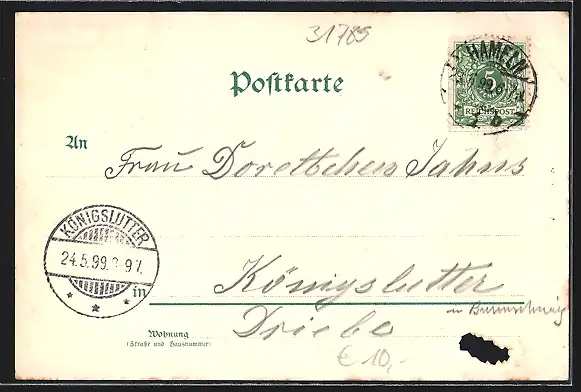 31785
HAMELN
5
REICHSPOST
Postkarte
An
Frau Dorettchen Jahns
KÖNIGSLUTTER
24.5.99. 8-9 V.
* * *
in
Königslutter
in Braunschweig
Driebe
Wohnung
(Straße und Hausnummer)
€ 10,-